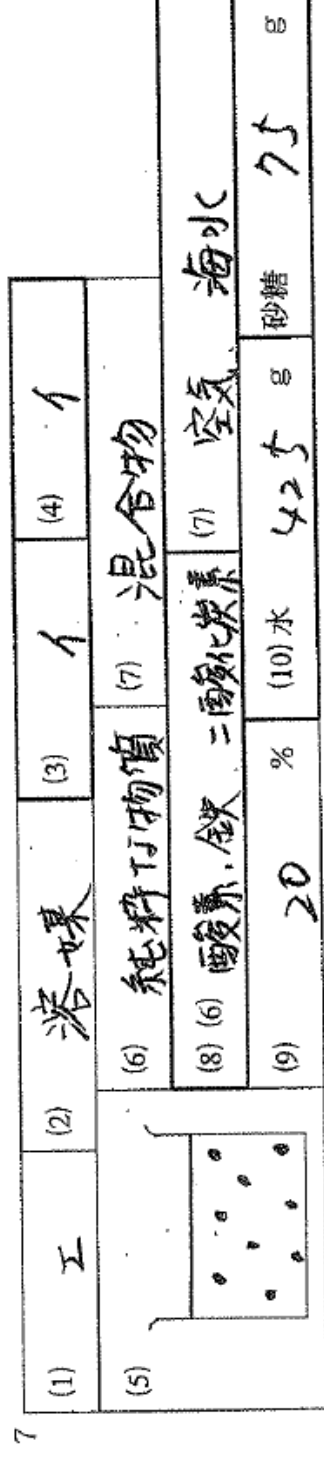 7
(1) エ (2) 溶媒 (3) イ (4) イ
(5)
(6) 純粋な物質 (7) 混合物
(8) (6) 酸素、鉄 二酸化炭素 (7) 空気 海水
(9) 20 % (10) 水 425 g 砂糖 75 g